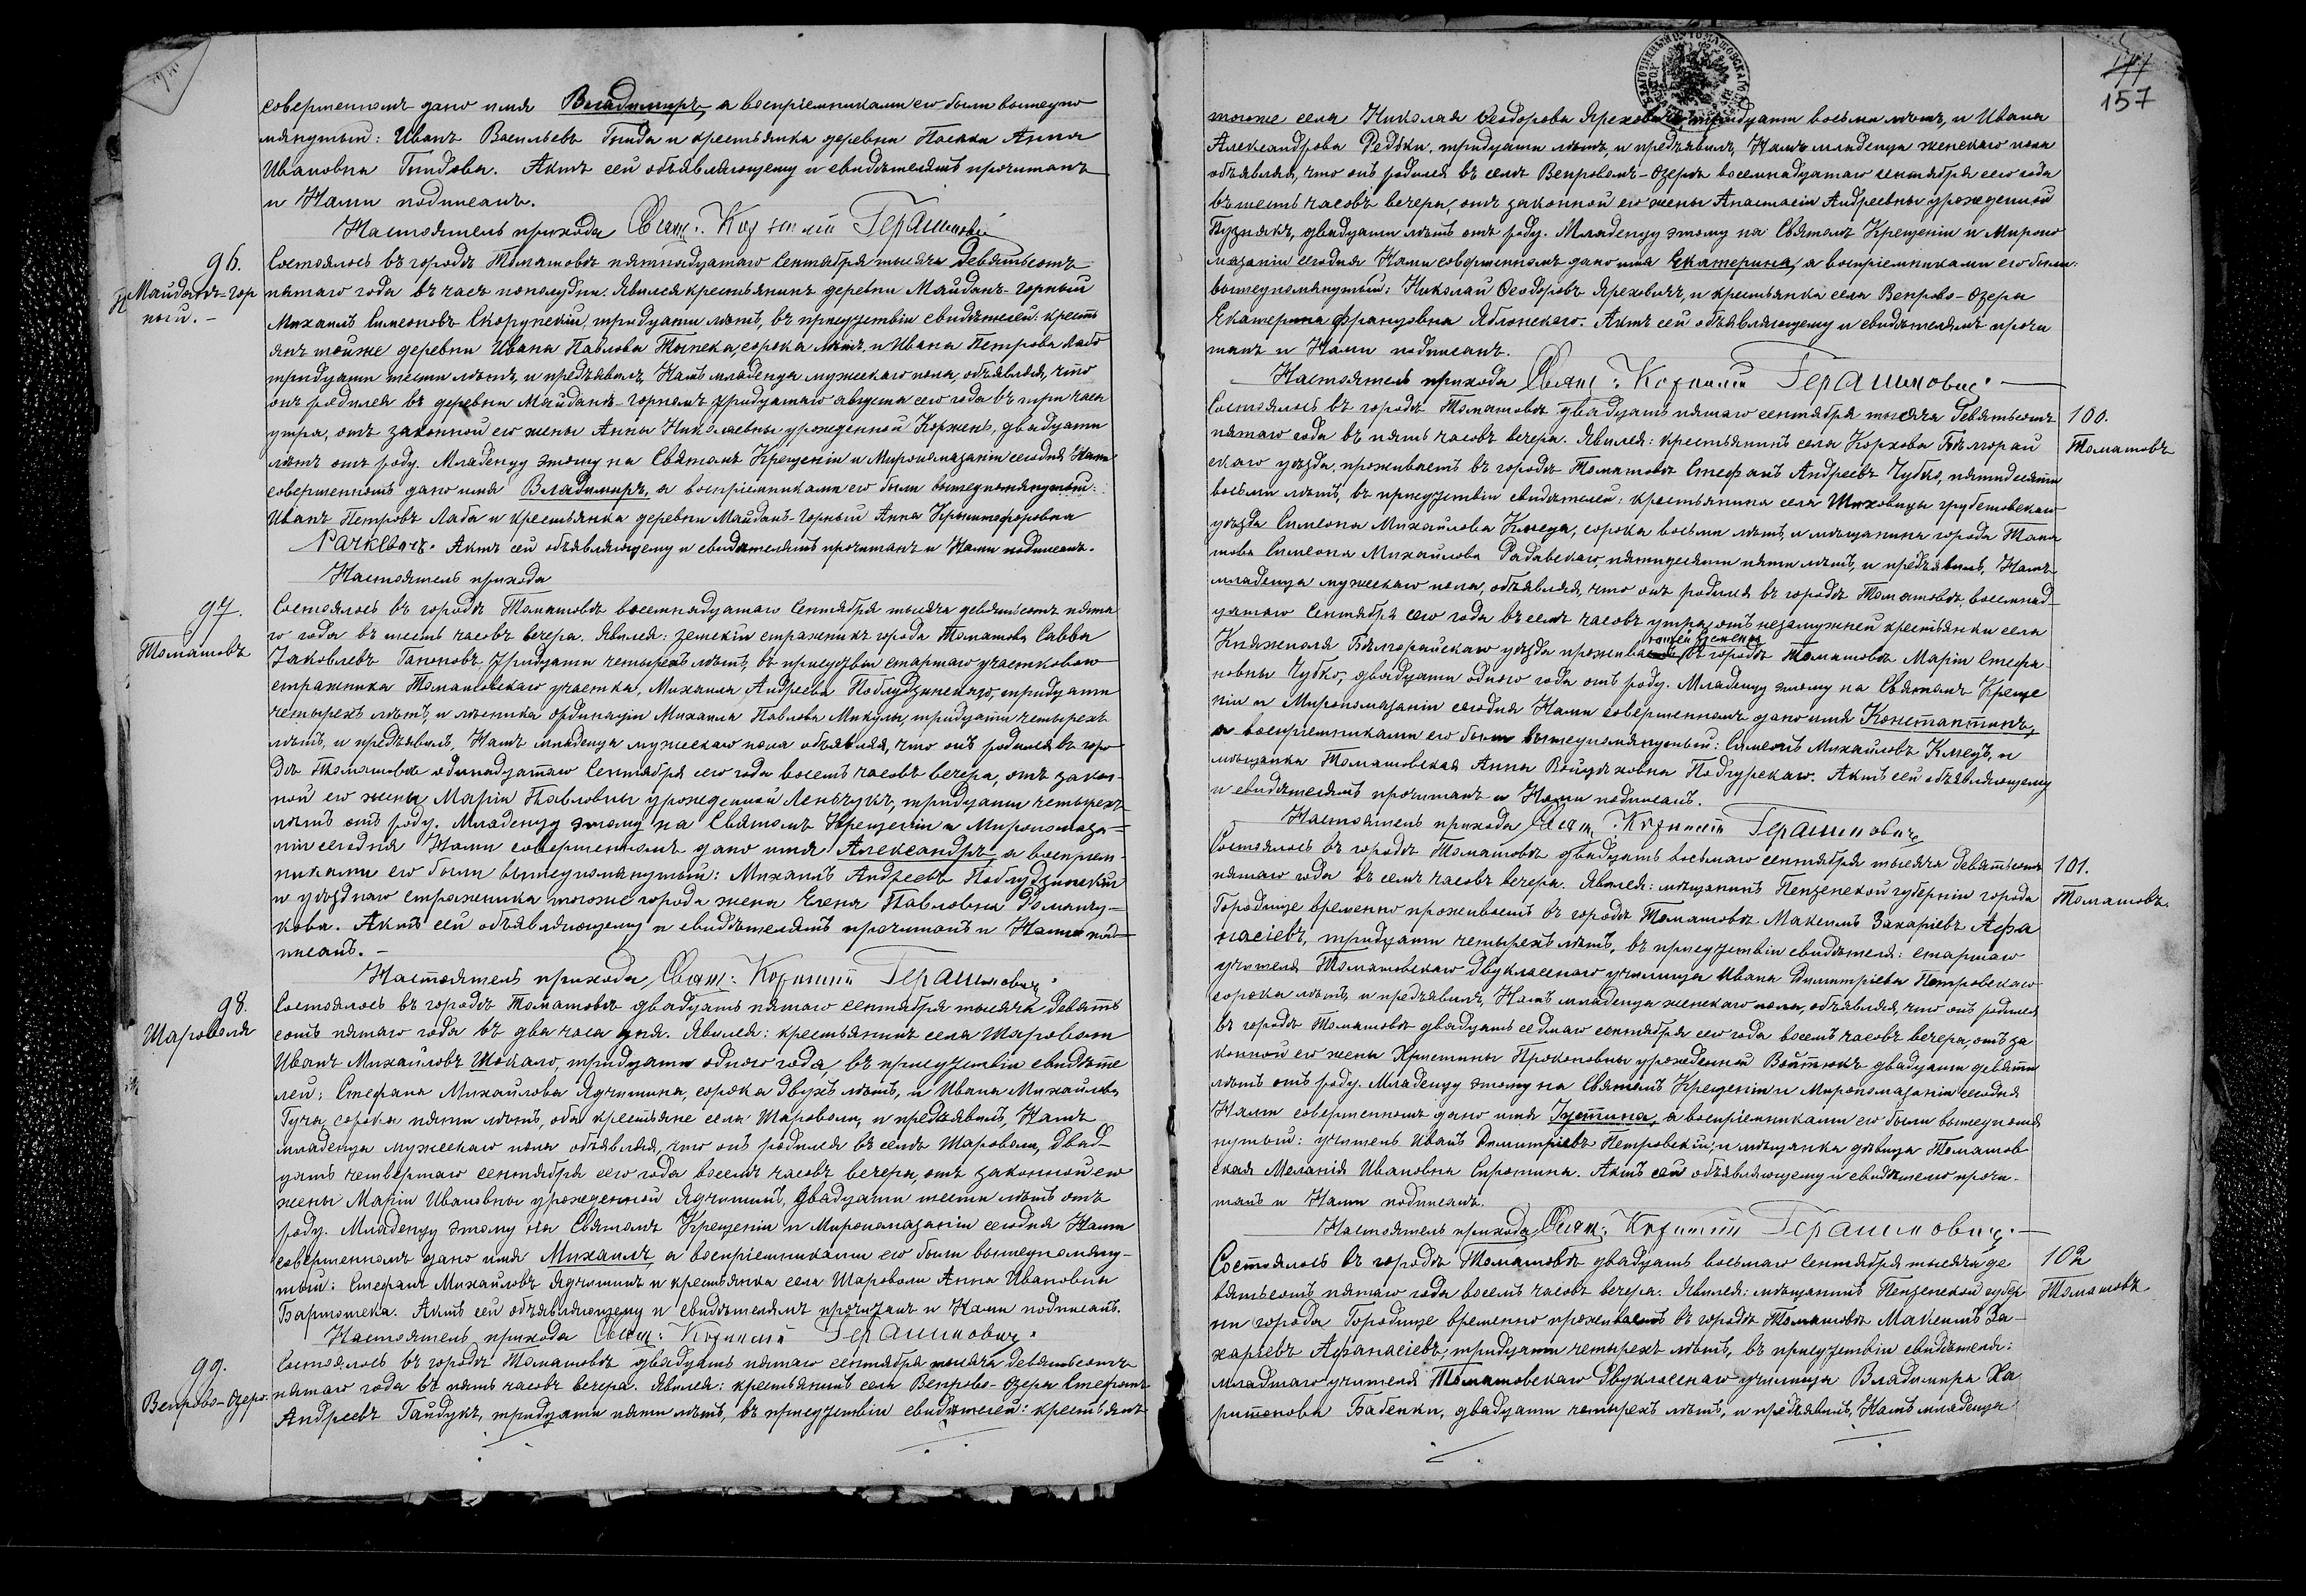 совершенномъ дано имя Владимиръ, а воспріемниками его были вышеупо
мянутый: Иванъ Васильевъ Гмида и крестьянка деревни Пасѣки Анна
Ивановна Гмидова. Актъ сей объявляющему и свидѣтелямъ прочитанъ
и Нами подписанъ.
Настоятель прихода Свящ:
96.
Майданъ-Гор
ный. -
Состоялось въ городѣ Томашовѣ пятнадцатаго Сентября тысяча девятьсотъ
пятаго года въ часъ пополудни. Явился крестьянинъ деревни Майданъ-Горный
Михаилъ Симеоновъ Скорупскій, тридцати лѣтъ, въ присутствіи свидѣтелей: кресть
янъ тойже деревни Ивана Павлова сорока лѣтъ, и Ивана Петрова Лабы
тридцати шести лѣтъ, и предъявилъ Намъ младенца мужескаго пола, объявляя, что
онъ родился въ деревни Майданъ-Горномъ тридцатаго августа сего года въ три часа
утра, отъ законной его жены Анны Николаевны урожденной Коржень, двадцати
лѣтъ отъ роду. Младенцу этому на Святомъ Крещеніи и Миропомазаніи сегодня Нами
совершенномъ дано имя Владимиръ, а воспріемниками его были вышеупомянутый:
Иванъ Петровъ Лаба и крестьянка деревни Майданъ-Горный Анна
Актъ сей объявляющему и свидѣтелямъ прочитанъ и Нами подписанъ.
Настоятель прихода
97.
Томашовъ
Состоялось въ городѣ Томашовѣ восемнадцатаго Сентября тысяча девятьсотъ пята
го года въ шесть часовъ вечера. Явился: земскій стражникъ города Томашова Савва
Іаковлевъ Гапоновъ, тридцати четырехъ лѣтъ, въ присутствіи старшаго участковаго
стражника Томашовскаго участка, Михаила Андреева Поблудзинскаго, тридцати
четырехъ лѣтъ, и лѣсника ординаціи Михаила Павлова Микулы, тридцати четырехъ
лѣтъ, и предъявилъ Намъ младенца мужескаго пола объявляя, что онъ родился въ горо
дѣ Томашовѣ одинадцатаго Сентября сего года восемь часовъ вечера, отъ закон-
ной его жены Маріи Павловны урожденной Леньчукъ, тридцати четырехъ
лѣтъ отъ роду. Младенцу этому на Святомъ Крещеніи и Миропомаза-
ніи сегодня Нами совершенномъ дано имя Александръ а воспріем-
никами его были вышеупомянутый: Михаилъ Андреевъ Поблудзинскій
и уѣзднаго стражника тогоже города жена Елена Павловна Романчу-
кова. Актъ сей объявляющему и свидѣтелямъ прочитанъ и Нами под-
писанъ. -
Настоятель прихода, Свящ: Герасимовичъ
98.
Шароволя
Состоялось въ городѣ Томашовѣ двадцать пятаго сентября тысяча девять
сотъ пятаго года въ два часа дня. Явился: крестьянинъ села Шароволи
Иванъ Михайловъ Шокало, тридцати одного года, въ присутствіи свидѣте
лей: Стефана Михайлова Ядчишина, сорока двухъ лѣтъ, и Ивана Михайлова
Гуча, сорока пяти лѣтъ, оба крестьяне села Шароволи, и предъявилъ Намъ
младенца мужескаго пола объявляя, что онъ родился въ селѣ Шароволи, двад-
цать четвертаго сентября сего года восемь часовъ вечера, отъ законной его
жены Маріи Ивановны урожденной Ядчишинъ, двадцати шести лѣтъ отъ
роду. Младенцу этому на Святомъ Крещеніи и Миропомазаніи сегодня Нами
совершенномъ дано имя Михаилъ, а воспріемниками его были вышеупомяну-
тый: Стефанъ Михайловъ Ядчишинъ и крестьянка села Шароволи Анна Ивановна
Бартошека. Актъ сей объявляющему и свидѣтелямъ прочитанъ и Нами подписанъ.
Настоятель прихода Свящ: Герасимовичъ.
99.
Вепрово-Озеро.
Состоялось въ городѣ Томашовѣ двадцать пятаго сентября тысяча девятьсотъ
пятаго года въ пять часовъ вечера. Явился: крестьянинъ села Вепрово-Озера Стефанъ
Андреевъ Гайдукъ, тридцати пяти лѣтъ, въ присутствіи свидѣтелей: крестьянъ
157
тогоже села Николая Ѳеодорова Яреховича, тридцати восьми лѣтъ, и Ивана
Александрова Редѣки, тридцати лѣтъ, и предъявилъ Намъ младенца женскаго пола
объявляя, что онъ родился въ селѣ Вепровомъ-Озерѣ восемнадцатаго сентября сего года
въ шесть часовъ вечера, отъ законной его жены Анастасіи Андреевны урожденной
двадцати лѣтъ отъ роду. Младенцу этому на Святомъ Крещеніи и Миропо
мазаніи сегодня Нами совершенномъ дано имя Екатерина, а воспріемниками его были:
вышеупомянутый: Николай Ѳеодоровъ Яреховичъ, и крестьянка села Вепрово-Озера
Екатерина Францовна Яблонскаго. Актъ сей объявляющему и свидѣтелямъ прочи
танъ и Нами подписанъ.
Настоятель прихода Свящ: Герасимовичъ.
100.
Томашовъ
Состоялось въ городѣ Томашовѣ двадцать пятаго сентября тысяча девятьсотъ
пятаго года въ пять часовъ вечера. Явился: крестьянинъ села Корхова Бѣлгорай
скаго уѣзда, проживаетъ въ городѣ Томашовѣ Стефанъ Андреевъ Чубко, пятидесяти
восьми лѣтъ, въ присутствіи свидѣтелей: крестьянина села Миховицы грубешовскаго
уѣзда Симеона Михайлова Клеца, сорока восьми лѣтъ, и мѣщанина города Тома
шова Симеона Михайлова Радавскаго, пятидесяти пяти лѣтъ, и предъявилъ Намъ
младенца мужескаго пола, объявляя, что онъ родился въ городѣ Томашовѣ, восемнад-
цатаго Сентября сего года въ семь часовъ утра, отъ незамужней крестьянки села
Княжполя Бѣлгорайскаго уѣзда въ городѣ Томашовѣ Маріи Стефа-
новны Чубко, двадцати одного года отъ роду. Младенцу этому на Святомъ Креще
ніи и Миропомазаніи сегодня Нами совершенномъ дано имя Константинъ,
а воспріемниками его были вышеупомянутый: Симеонъ Михайловъ Клецъ, и
мѣщанка Томашовская Анна Войцѣховна Подгурскаго. Актъ сей объявляющему
и свидѣтелямъ прочитанъ и Нами подписанъ.
Настоятель прихода Свящ: Герасимовичъ
101.
Томашовъ.
Состоялось въ городѣ Томашовѣ двадцать восьмаго сентября тысяча девятьсотъ
пятаго года въ семь часовъ вечера. Явился: мѣщанинъ Пензенской губерніи города
Городище временно проживаетъ въ городѣ Томашовѣ Максимъ Захаріевъ Афа
насіевъ, тридцати четырехъ лѣтъ, въ присутствіи свидѣтеля: старшаго
учителя Томашовскаго двукласснаго училища Ивана Димитріева Петровскаго
сорока лѣтъ, и предъявилъ Намъ младенца женскаго пола, объявляя, что онъ родился
въ городѣ Томашовѣ двадцать седмаго сентября сего года восемь часовъ вечера, отъ за
конной его жены Христины Прокоповны урожденной Войтюкъ двадцати девяти
лѣтъ отъ роду. Младенцу этому на Святомъ Крещеніи и Миропомазаніи сегодня
Нами совершенномъ дано имя Іустина, а воспріемниками его были вышеупомя
нутый: учитель Иванъ Димитріевъ Петровскій, и мѣщанка дѣвица Томашов
ская Меланія Ивановна Сиротина. Актъ сей объявляющему и свидѣтелю прочи-
танъ и Нами подписанъ.
Настоятель прихода Свящ: Герасимовичъ.
102
Томашовъ
Состоялось въ городѣ Томашовѣ двадцать восьмаго Сентября тысяча де
вятьсотъ пятаго года восемь часовъ вечера. Явился: мѣщанинъ Пензенской губер
ніи города Городище временно проживаетъ въ городѣ Томашовѣ Максимъ За-
харіевъ Афанасіевъ, тридцати четырехъ лѣтъ, въ присутствіи свидѣтеля:
младшаго учителя Томашовскаго двукласснаго училища Владимира Ха
ритонова Бабенки, двадцати четырехъ лѣтъ, и предъявилъ Намъ младенца